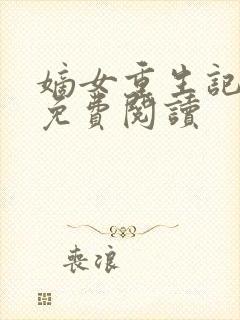 嫡女重生記
免費閱讀
喪浪